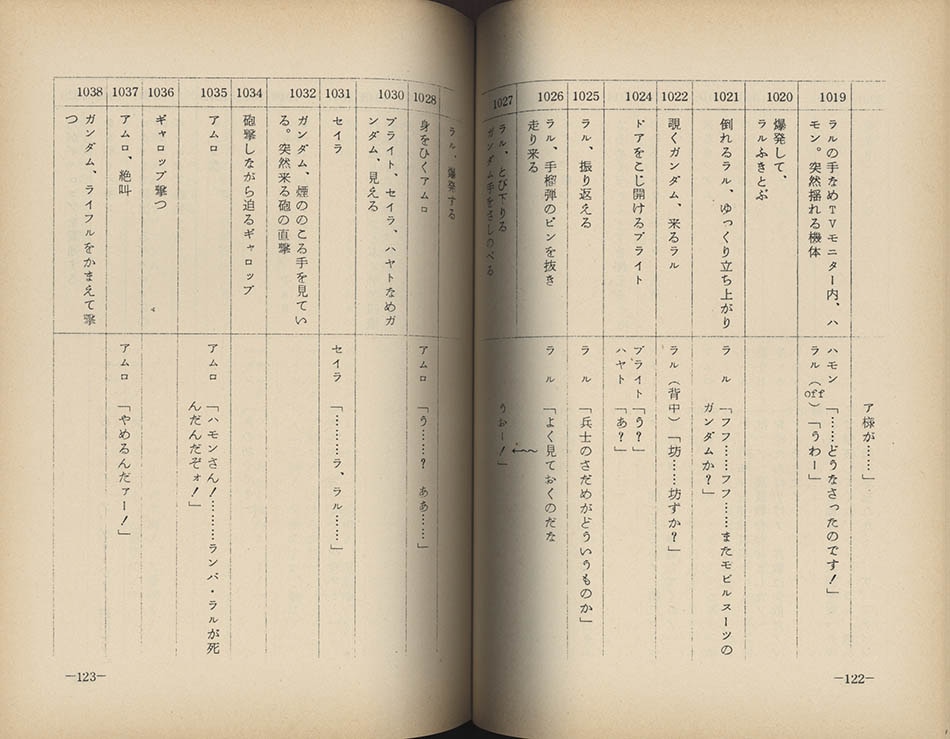 ア様が……」
1019
ラルの手なめTVモニター内、ハ
モン。突然揺れる機体
ハモン「……どうなさったのです！」
ラル（off）「うわー」
1020
爆発して、
ラルふきとぶ
1021
倒れるラル、ゆっくり立ち上がり
ラル「フフ……フフ……またモビルスーツの
ガンダムか？」
1022
覗くガンダム、来るラル
ラル（背中）「坊……坊ずか？」
1024
ドアをこじ開けるブライト
ブライト「う？」
ハヤト「あ？」
1025
ラル、振り返える
ラル「兵士のさだめがどういうものか」
1026
ラル、手榴弾のピンを抜き
走り来る
ラル「よく見ておくのだな
1027
ラル、とび下りる
ガンダム手をさしのべる
うおー！」
—122—
ラル、爆発する
1028
身をひくアムロ
アムロ「う……？　ああ……」
1030
ブライト、セイラ、ハヤトなめガ
ンダム、見える
1031
セイラ
セイラ「………ラ、ラル……」
1032
ガンダム、煙ののこる手を見てい
る。突然来る砲の直撃
1034
砲撃しながら迫るギャロップ
1035
アムロ
アムロ「ハモンさん！………ランバ・ラルが死
んだんだぞォ！」
1036
ギャロップ撃つ
1037
アムロ、絶叫
アムロ「やめるんだァー！」
1038
ガンダム、ライフルをかまえて撃
つ
—123—